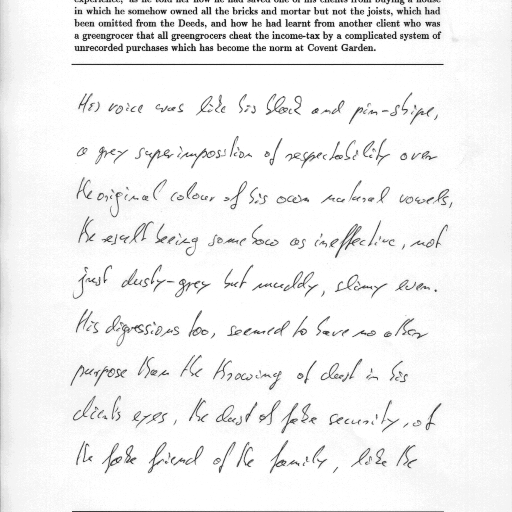 experience, as he told her how he had saved one of his clients from buying a house
in which he somehow owned all the bricks and mortar but not the joists, which had
been omitted from the Deeds, and how he had learnt from another client who was
a greengrocer that all greengrocers cheat the income-tax by a complicated system of
unrecorded purchases which has become the norm at Covent Garden.
His voice was like his black and pin-stripe,
a grey superimposition of respectability over
the original colour of his own natural vowels,
the result being somehow as ineffective, not
just dusty-grey but muddy, slimy even.
His digressions too, seemed to have no other
purpose than the throwing of dust in his
clients eyes, the dust of fake security, of
the fake friend of the family, like the